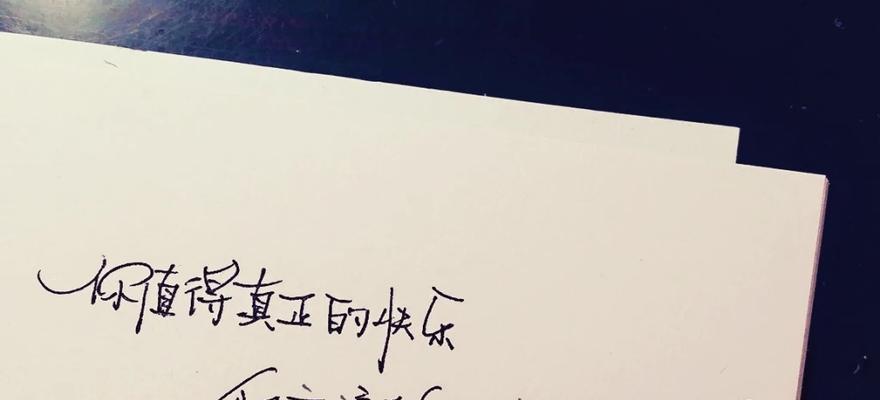 你值得真正的快乐